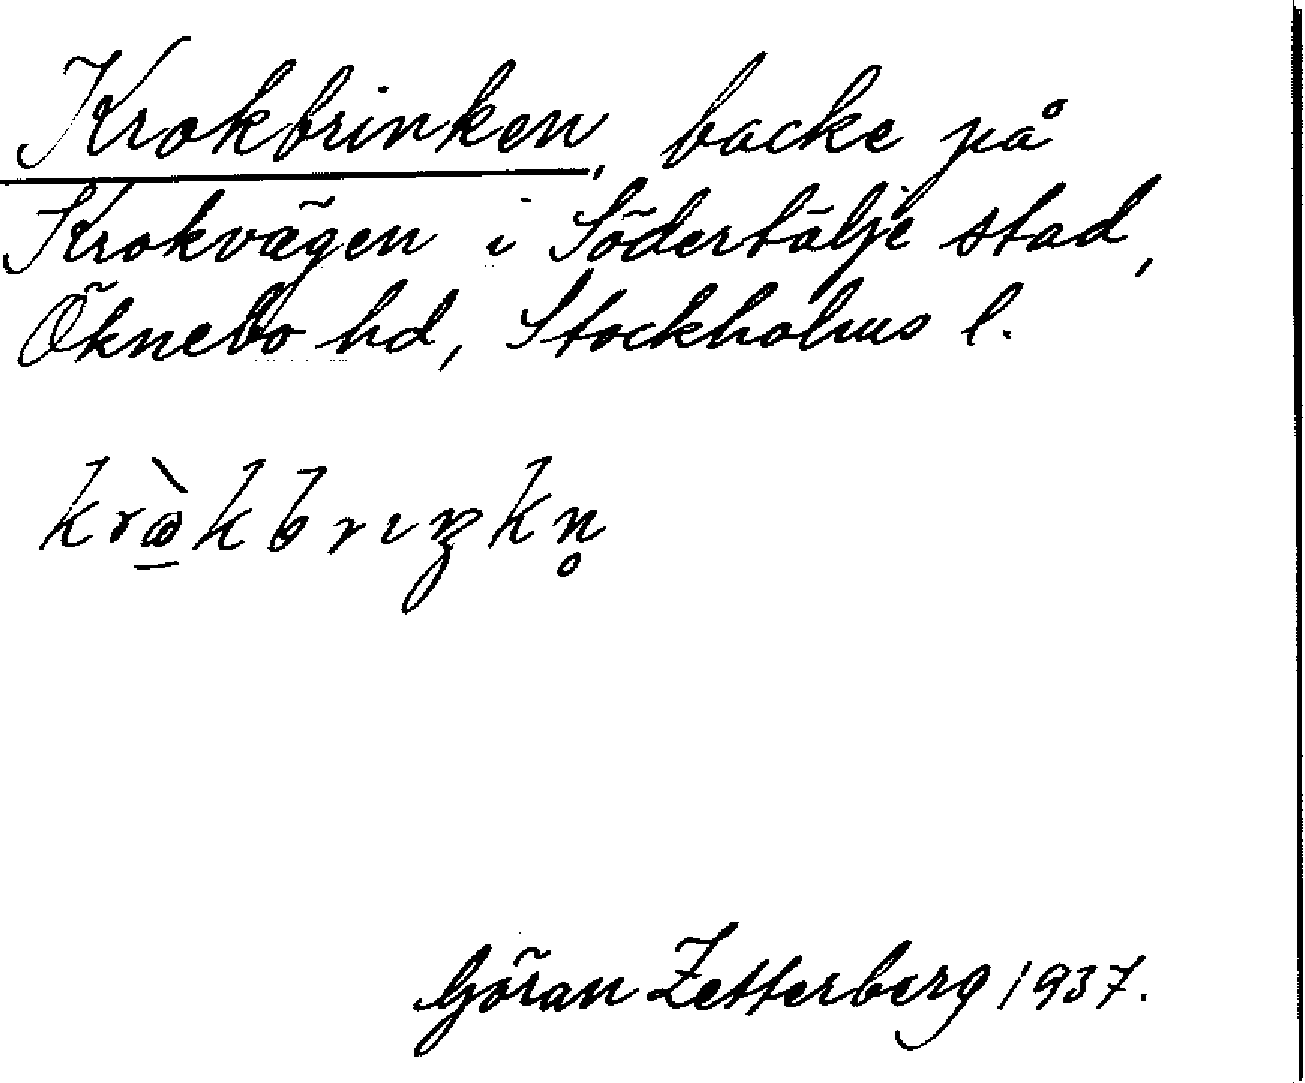 Krokbrinken, backe på
Krokvägen i Södertälje stad,
Öknebo hd, Stockholms l.
Göran Zetterberg 1937.